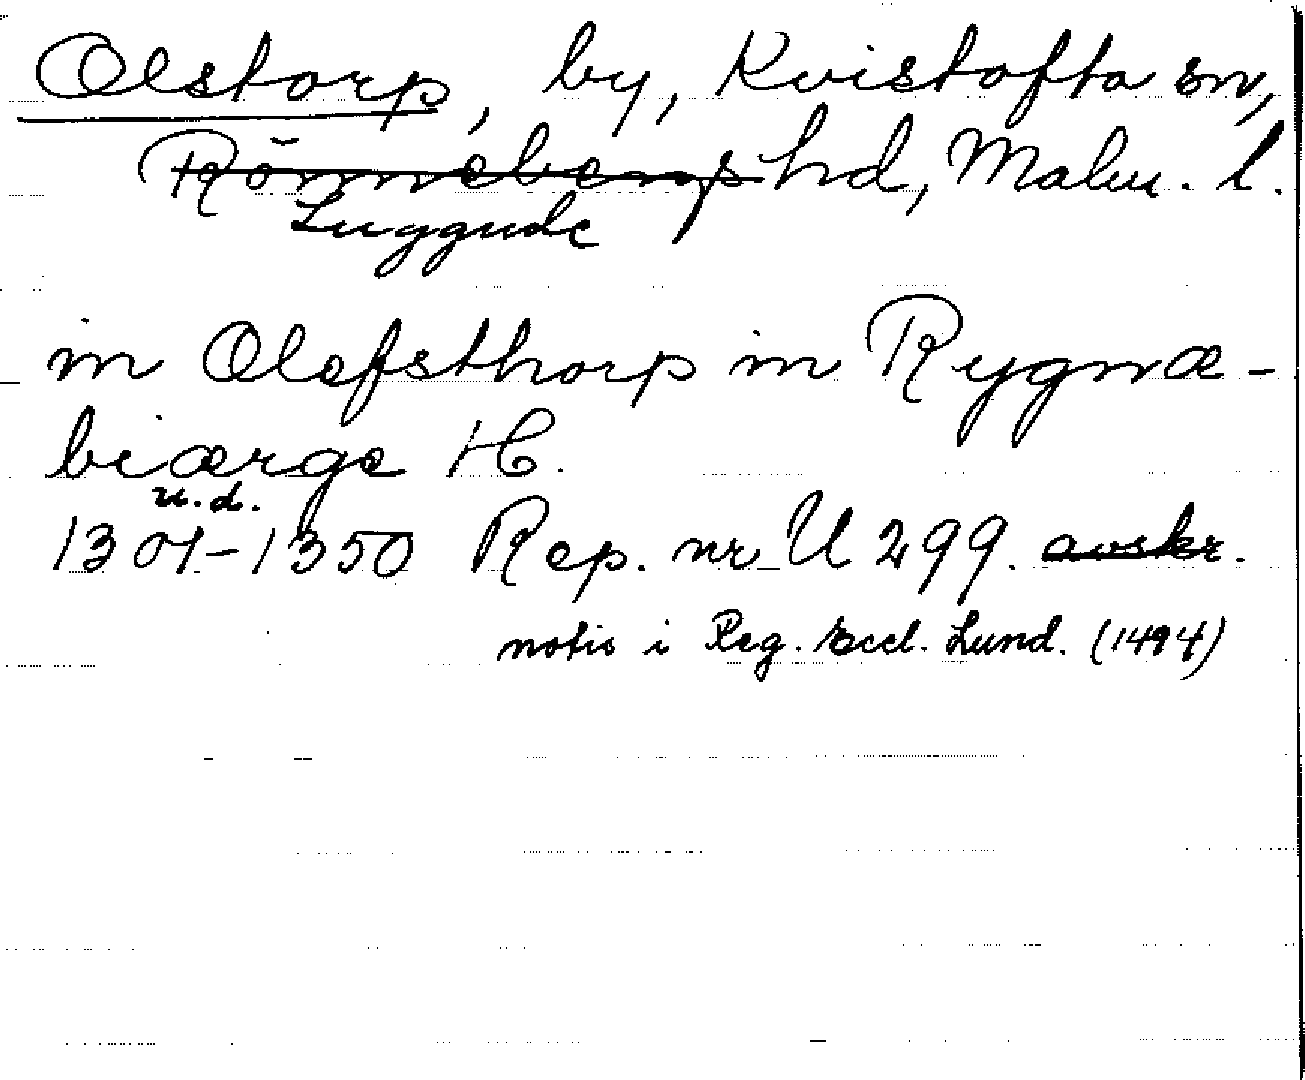 Olstorp, by, Kvistofta sn,
Rönnebergs hd, Malm. l.
Luggude
in Olefsthorp in Rygnæ-
biærge H.
u.d.
1301-1350 Rep. nr U 299. avskr.
notis i Reg. Eccl. Lund. (1494)